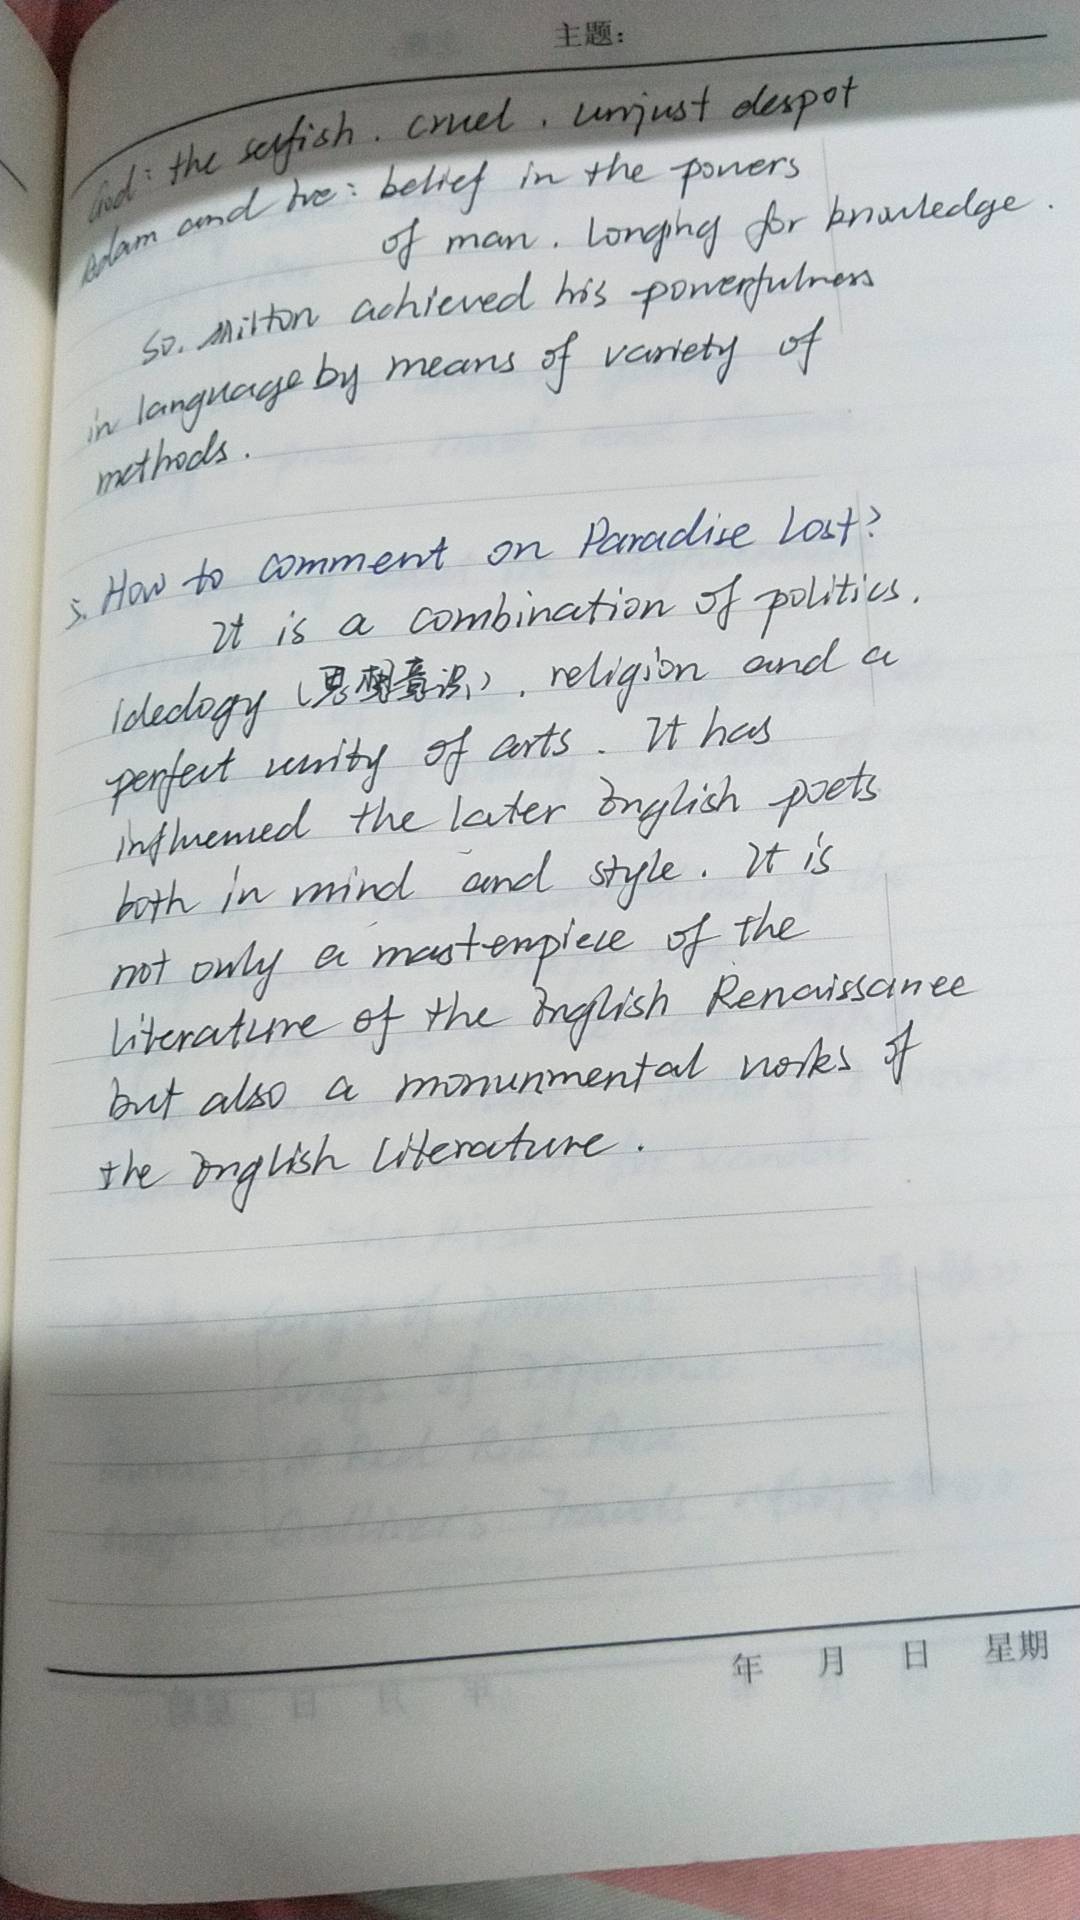 主题:
God: the selfish. cruel. unjust despot
Adam and Eve: belief in the powers
of man. Longing for knowledge.
So. Milton achieved his powerfulness
in language by means of variety of
methods.
5. How to comment on Paradise Lost?
It is a combination of politics.
idedogy (思想意识). religion and a
perfect unity of arts. It has
influenced the later English poets
both in mind and style. It is
not only a masterpiece of the
literature of the English Renaissance
but also a monunmental works of
the English literature.
年 月 日 星期